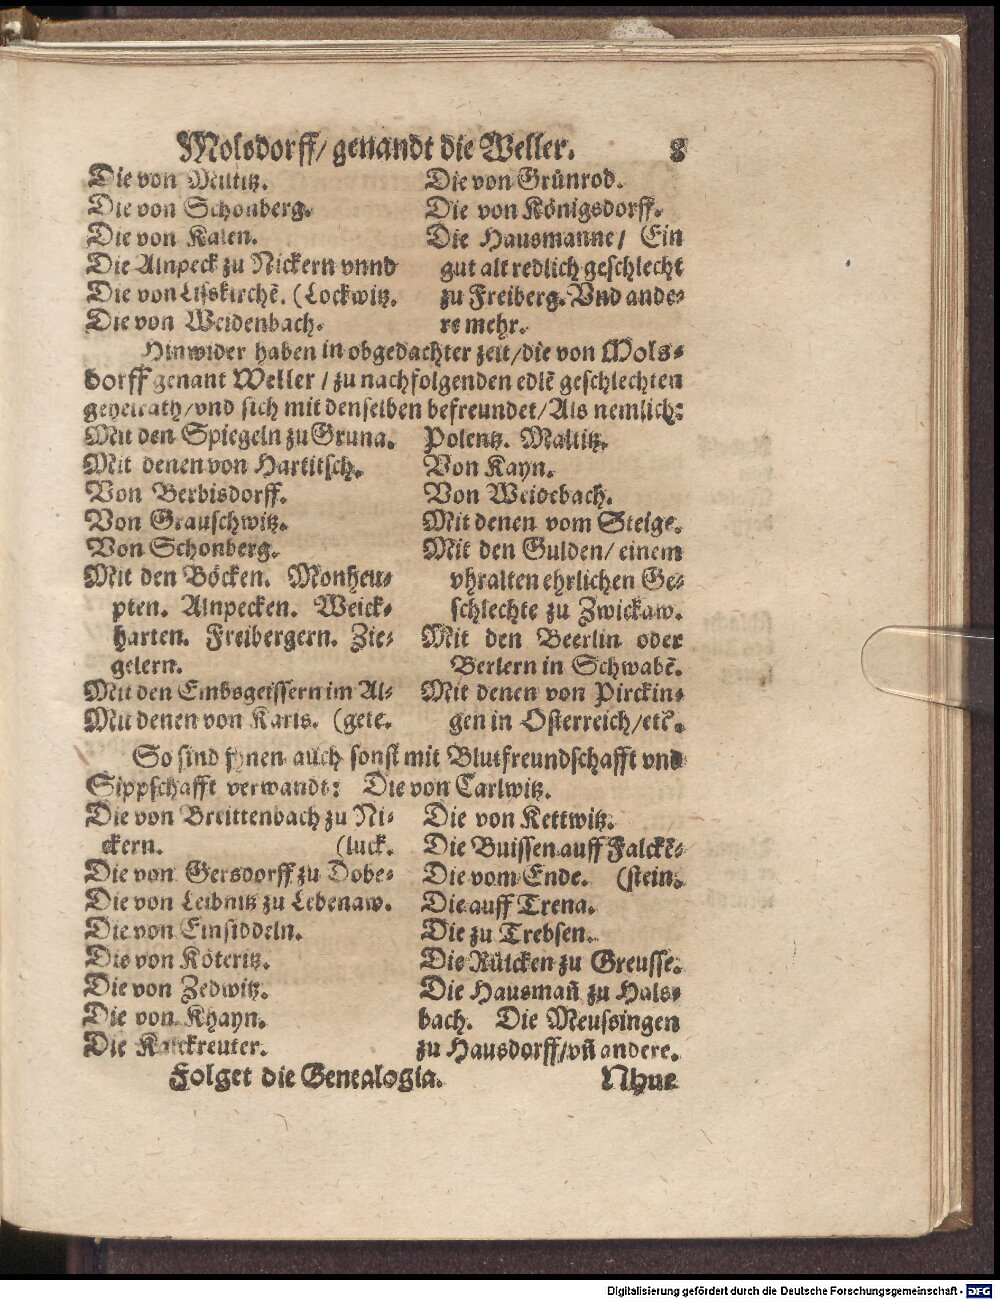 Molsdorff/ genandt die Weller. 8
Die von Miltitz.
Die von Schonberg.
Die von Kalen.
Die Alnpeck zu Nickern vnnd
Die von Lisskirchē. (Lockwitz.
Die von Weidenbach.
Die von Grünrod.
Die von Königsdorff.
Die Hausmanne/ Ein
gut alt redlich geschlecht
zu Freiberg. Vnd ande-
re mehr.
Hinwider haben in obgedachter zeit/die von Mols-
dorff genant Weller / zu nachfolgenden edlē geschlechten
geheirath/vnd sich mit denselben befreundet/Als nemlich:
Mit den Spiegeln zu Gruna.
Mit denen von Hartitsch.
Von Berbisdorff.
Von Grauschwitz.
Von Schonberg.
Mit den Böcken. Monheu-
pten. Alnpecken. Weick-
harten. Freibergern. Zie-
gelern.
Mit den Embsgeissern im Al-
Mit denen von Karis. (gete.
Polentz. Maltitz.
Von Kayn.
Von Weidebach.
Mit denen vom Steige.
Mit den Gulden/ einem
vhralten ehrlichen Ge-
schlechte zu Zwickaw.
Mit den Beerlin oder
Berlern in Schwabē.
Mit denen von Pirckin-
gen in Osterreich/etc̄.
So sind jhnen auch sonst mit Blutfreundschafft vnd
Sippschafft verwandt: Die von Carlwitz.
Die von Breittenbach zu Ni-
ckern. (luck.
Die von Gersdorff zu Dobe-
Die von Leibnitz zu Lebenaw.
Die von Einsiddeln.
Die von Köteritz.
Die von Zedwitz.
Die von Khayn.
Die Kalckreuter.
Die von Kettwitz.
Die Buissen auff Falckē-
Die vom Ende. (stein.
Die auff Trena.
Die zu Trebsen.
Die Rülcken zu Greusse.
Die Hausmañ zu Hals-
bach. Die Meussingen
zu Hausdorff/vñ andere.
Folget die Genealogia. Nhue
Digitalisierung gefördert durch die Deutsche Forschungsgemeinschaft - DFG